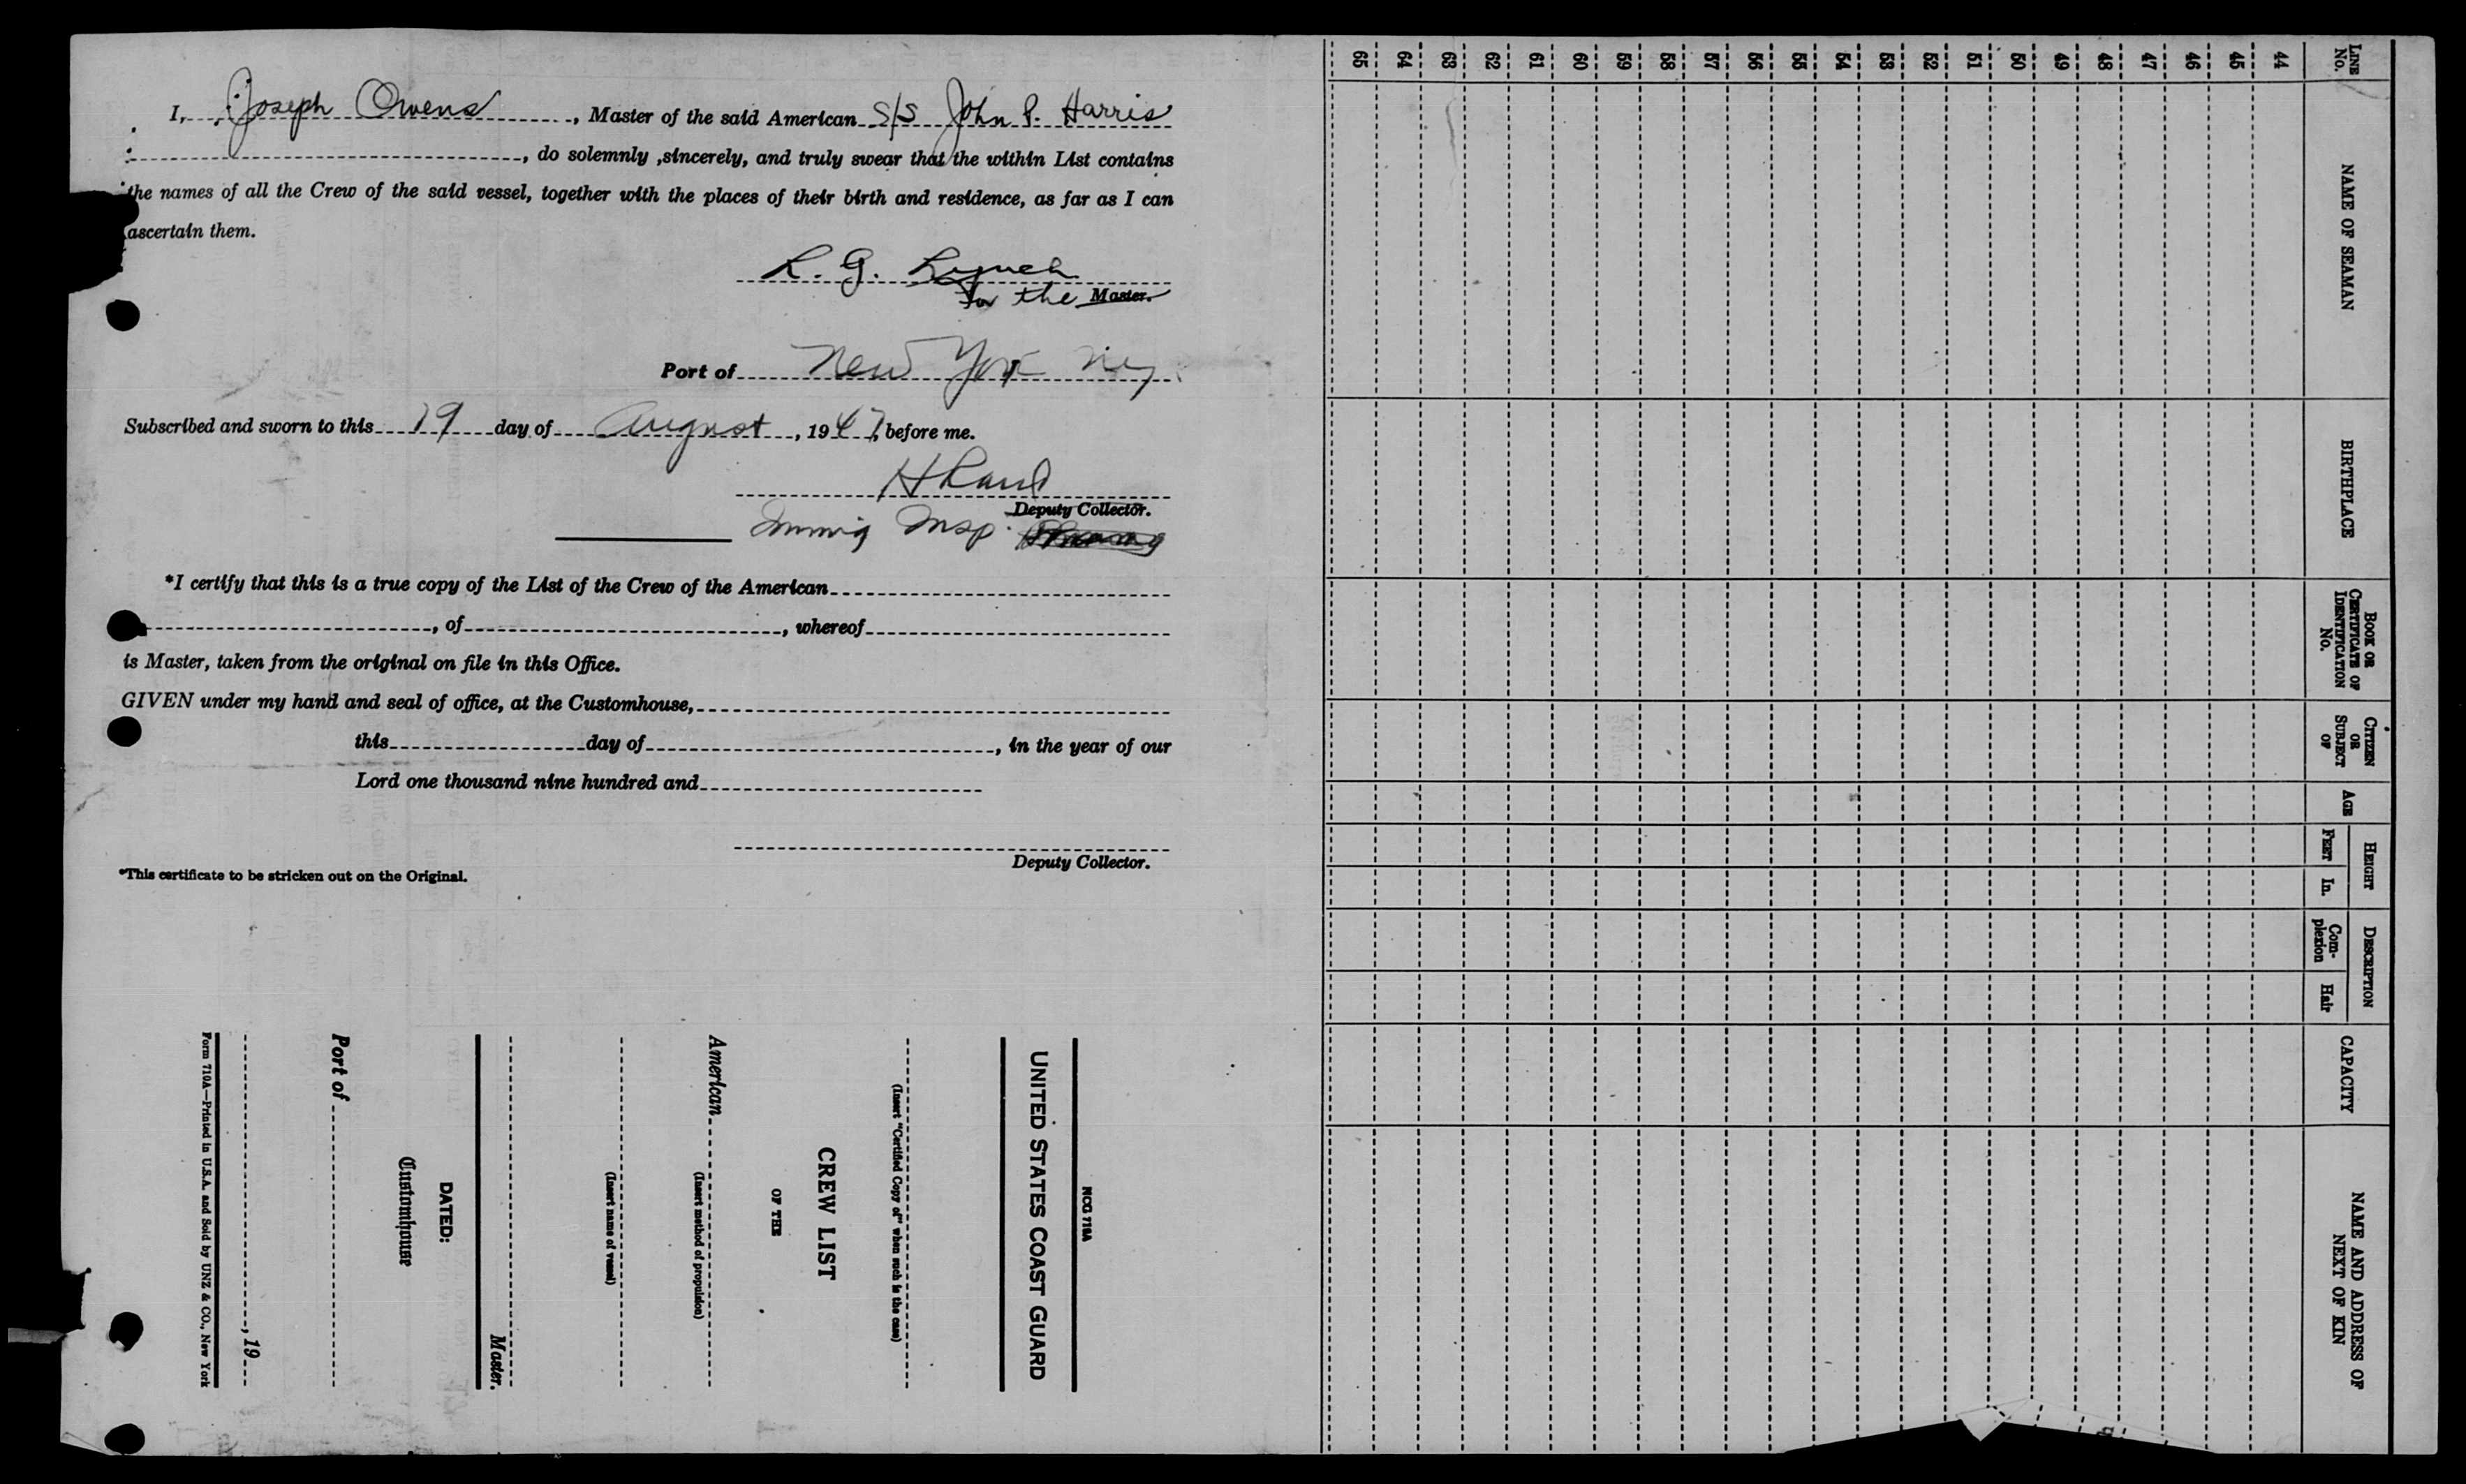 I, Joseph Owens, Master of the said American S/S John P. Harris
, do solemnly ,sincerely, and truly swear that the within List contains
the names of all the Crew of the said vessel, together with the places of their birth and residence, as far as I can
ascertain them.
R. G. Lynch
For the Master.
Port of New York NY
Subscribed and sworn to this 19 day of August, 1947, before me.
Deputy Collector.
Immig Insp.
*I certify that this is a true copy of the List of the Crew of the American
, of , whereof
is Master, taken from the original on file in this Office.
GIVEN under my hand and seal of office, at the Customhouse,
this day of , in the year of our
Lord one thousand nine hundred and
Deputy Collector.
*This certificate to be stricken out on the Original.
NCG 710A
UNITED STATES COAST GUARD
(Insert "Certified Copy of" when such is the case)
CREW LIST
OF THE
American
(Insert method of propulsion)
(Insert name of vessel)
Master.
DATED:
Customhouse
Port of
, 19
Form 710A—Printed in U.S.A. and Sold by UNZ & CO., New York
LINE No.
NAME OF SEAMAN
BIRTHPLACE
BOOK OR CERTIFICATE OF IDENTIFICATION No.
CITIZEN OR SUBJECT OF
AGE
HEIGHT
FEET
In.
DESCRIPTION
Complexion
Hair
CAPACITY
NAME AND ADDRESS OF NEXT OF KIN
44
45
46
47
48
49
50
51
52
53
54
55
56
57
58
59
60
61
62
63
64
65